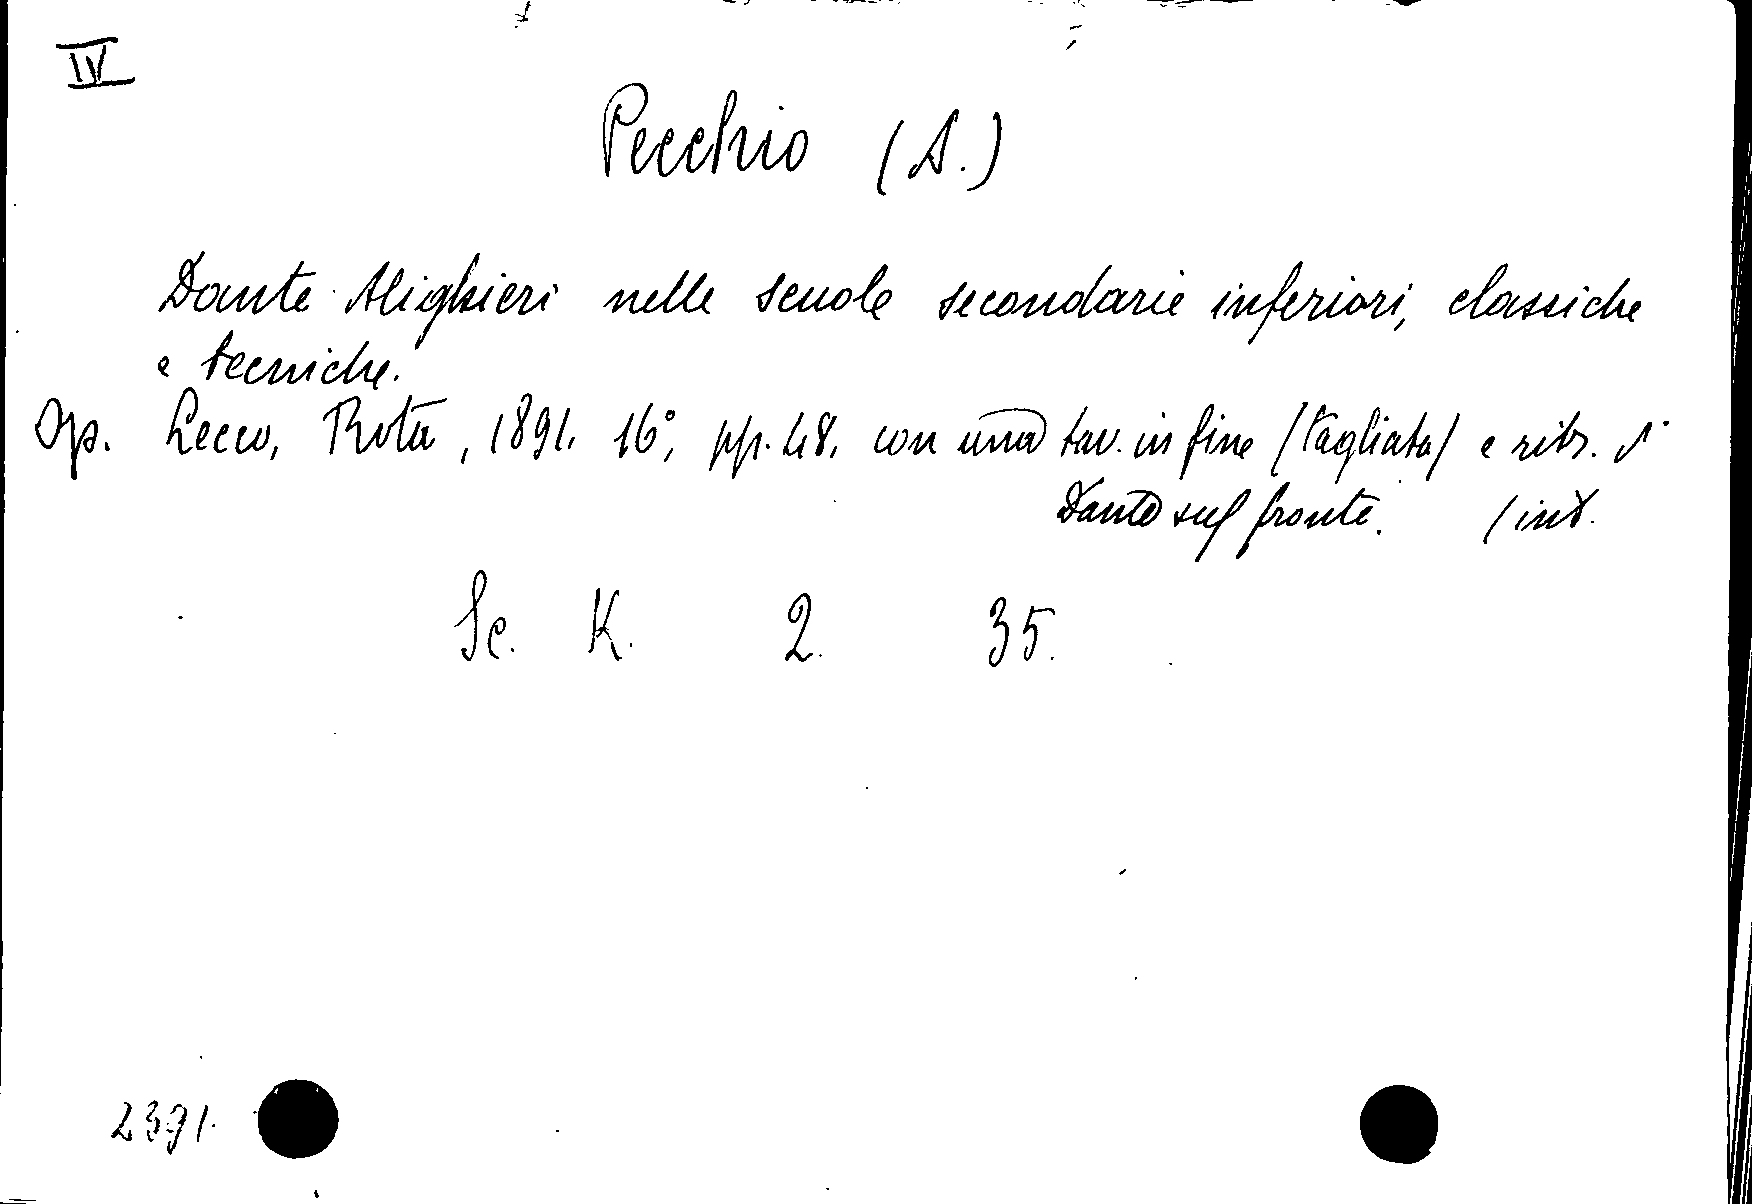 IV
Pecchio (A.)
Dante Alighieri nelle scuole secondarie inferiori, classiche
e tecniche.
Op. Lecco, Rota, 1891. 16°, pp. 48. con una tav. in fine (tagliata) e ritr. d'
Dante sul fronte. (int.
Sc. K. 2. 35.
2391.